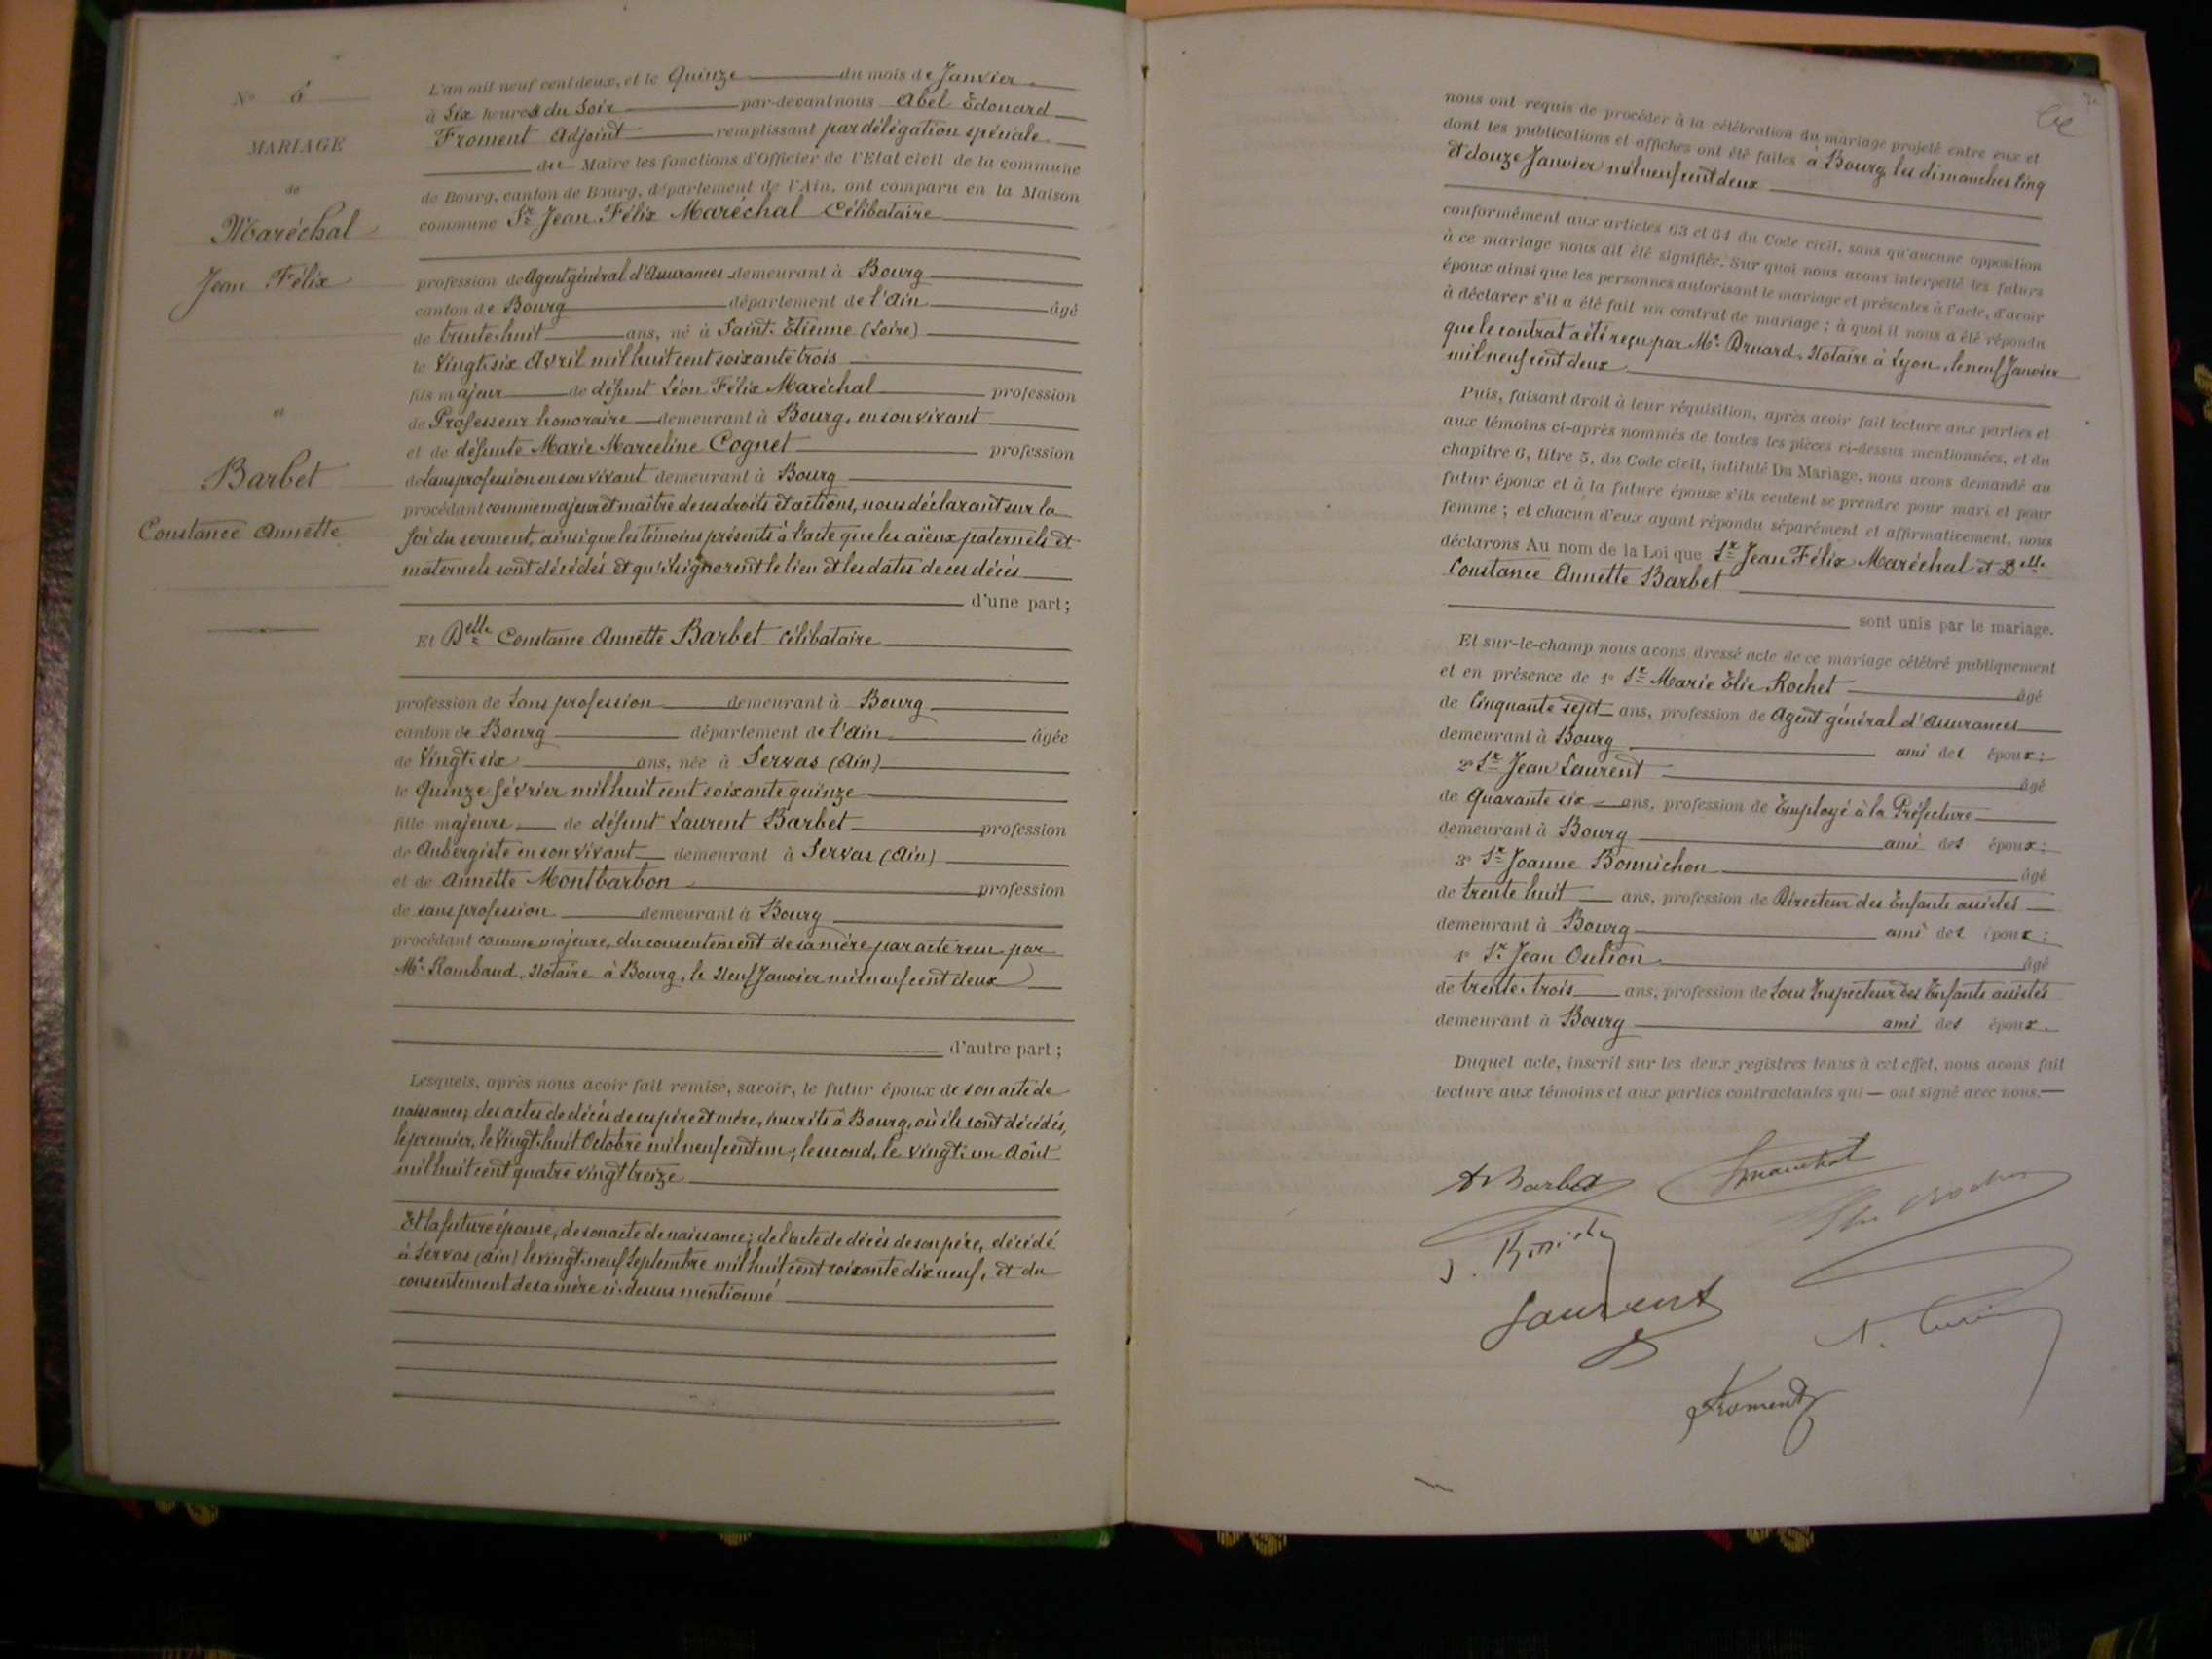 N° 6
MARIAGE
de
Maréchal
Jean Félix
et
Barbet
Constance Annette
L'an mil neuf cent deux, et le Quinze du mois de Janvier
à Six heures du Soir par-devant nous Abel Edouard
Froment Adjoint remplissant par délégation spéciale
du Maire les fonctions d'Officier de l'Etat civil de la commune
de Bourg, canton de Bourg, département de l'Ain, ont comparu en la Maison
commune Sr Jean Félix Maréchal Célibataire
profession de Agent général d'Assurances demeurant à Bourg
canton de Bourg département de l'Ain âgé
de trente-huit ans, né à Saint-Etienne (Loire)
le Vingt-six Avril mil huit cent soixante trois
fils majeur de défunt Léon Félix Maréchal profession
de Professeur honoraire demeurant à Bourg, en son vivant
et de défunte Marie Marceline Cognet profession
de Sans profession en son vivant demeurant à Bourg
procédant comme majeur et maître de ses droits et actions, nous déclarant sur la
foi du serment, ainsi que les témoins présents à l'acte que les aïeux paternels et
maternels sont décédés et qu'ils ignorent le lieu et les dates de ces décès
d'une part;
Et Delle Constance Annette Barbet célibataire
profession de Sans profession demeurant à Bourg
canton de Bourg département de l'Ain âgée
de Vingt-six ans, née à Servas (Ain)
le Quinze février mil huit cent soixante quinze
fille majeure de défunt Laurent Barbet profession
de Aubergiste en son vivant demeurant à Servas (Ain)
et de Annette Montbarbon profession
de sans profession demeurant à Bourg
procédant comme majeure, du consentement de sa mère par acte reçu par
Me Rambaud, Notaire à Bourg, le Neuf Janvier mil neuf cent deux
d'autre part;
Lesquels, après nous avoir fait remise, savoir, le futur époux de son acte de
naissance; des actes de décès de ses père et mère, inscrits à Bourg, où ils sont décédés,
le premier, le Vingt-huit Octobre mil neuf cent un; le second, le vingt-un Août
mil huit cent quatre vingt treize
Et la future épouse, de son acte de naissance; de l'acte de décès de son père, décédé
à Servas (Ain) le vingt-neuf Septembre mil huit cent soixante dix neuf, et du
consentement de sa mère ci-dessus mentionné
nous ont requis de procéder à la célébration du mariage projeté entre eux et
dont les publications et affiches ont été faites à Bourg, les dimanches Cinq
et douze Janvier mil neuf cent deux
conformément aux articles 63 et 64 du Code civil, sans qu'aucune opposition
à ce mariage nous ait été signifiée. Sur quoi nous avons interpellé les futurs
époux ainsi que les personnes autorisant le mariage et présentes à l'acte, d'avoir
à déclarer s'il a été fait un contrat de mariage; à quoi il nous a été répondu
que le contrat a été reçu par Me Bruard, Notaire à Lyon, le neuf Janvier
mil neuf cent deux
Puis, faisant droit à leur réquisition, après avoir fait lecture aux parties et
aux témoins ci-après nommés de toutes les pièces ci-dessus mentionnées, et du
chapitre 6, titre 5, du Code civil, intitulé Du Mariage, nous avons demandé au
futur époux et à la future épouse s'ils veulent se prendre pour mari et pour
femme; et chacun d'eux ayant répondu séparément et affirmativement, nous
déclarons Au nom de la Loi que Sr Jean Félix Maréchal et Delle
Constance Annette Barbet
sont unis par le mariage.
Et sur-le-champ nous avons dressé acte de ce mariage célébré publiquement
et en présence de 1° Sr Marie Elie Rochet âgé
de Cinquante sept ans, profession de Agent général d'Assurances
demeurant à Bourg ami des époux;
2° Sr Jean Laurent âgé
de Quarante six ans, profession de Employé à la Préfecture
demeurant à Bourg ami des époux;
3° Sr Joanne Bonnichon âgé
de trente huit ans, profession de Directeur des Enfants assistés
demeurant à Bourg ami des époux;
4° Sr Jean Oulion âgé
de trente-trois ans, profession de Sous Inspecteur des Enfants assistés
demeurant à Bourg ami des époux.
Duquel acte, inscrit sur les deux registres tenus à cet effet, nous avons fait
lecture aux témoins et aux parties contractantes qui — ont signé avec nous.—
A Barbet
Maréchal
Laurent
Froment